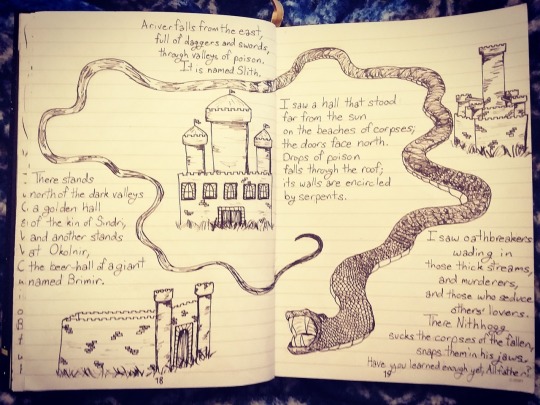 A river falls from the east,
full of daggers and swords,
through valleys of poison.
It is named Slith.
There stands
north of the dark valleys
a golden hall
of the kin of Sindri,
and another stands
at Okolnir,
the beer-hall of a giant
named Brimir.
18
I saw a hall that stood
far from the sun
on the beaches of corpses;
the doors face north.
Drops of poison
falls through the roof;
its walls are encircled
by serpents.
I saw oathbreakers
wading in
those thick streams,
and murderers,
and those who seduce
others' lovers.
There Nithhogg
sucks the corpses of the fallen,
snaps them in his jaws.
Have you learned enough yet, Allfather?
19